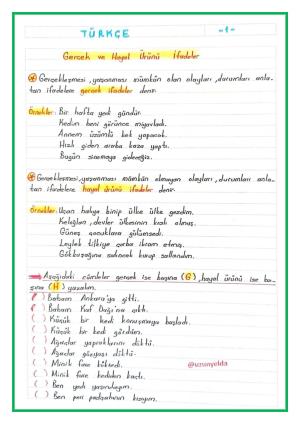 TÜRKÇE
-1-
Gerçek ve Hayal Ürünü İfadeler
Gerçekleşmesi, yaşanması mümkün olan olayları, durumları anla-
tan ifadelere gerçek ifadeler denir.
Örnekler: Bir hafta yedi gündür.
Kedim beni görünce miyavladı.
Annem üzümlü kek yapacak.
Hızlı giden araba kaza yaptı.
Bugün sinemaya gideceğiz.
Gerçekleşmesi, yaşanması mümkün olmayan olayları, durumları anla-
tan ifadelere hayal ürünü ifadeler denir.
Örnekler: Uçan halıya binip ülke ülke gezdim.
Keloğlan, devler ülkesinin kralı olmuş.
Güneş çocuklara gülümsedi.
Leylek tilkiye çorba ikram etmiş.
Gökkuşağına salıncak kurup sallandım.
Aşağıdaki cümleler gerçek ise başına (G), hayal ürünü ise ba-
şına (H) yazalım.
( ) Babam Ankara'ya gitti.
( ) Babam Kaf Dağı'na
( ) Küçük bir kedi konuşmaya başladı.
( ) Küçük bir kedi gördüm.
( ) Ağaçlar yapraklarını döktü.
( ) Ağaçlar gözyaşı döktü.
( ) Minik fare
( ) Minik fare kediden kaçtı.
( ) Ben yazı yazıyorum.
( ) Ben peri padişahının kızıyım.
@uzunyelda